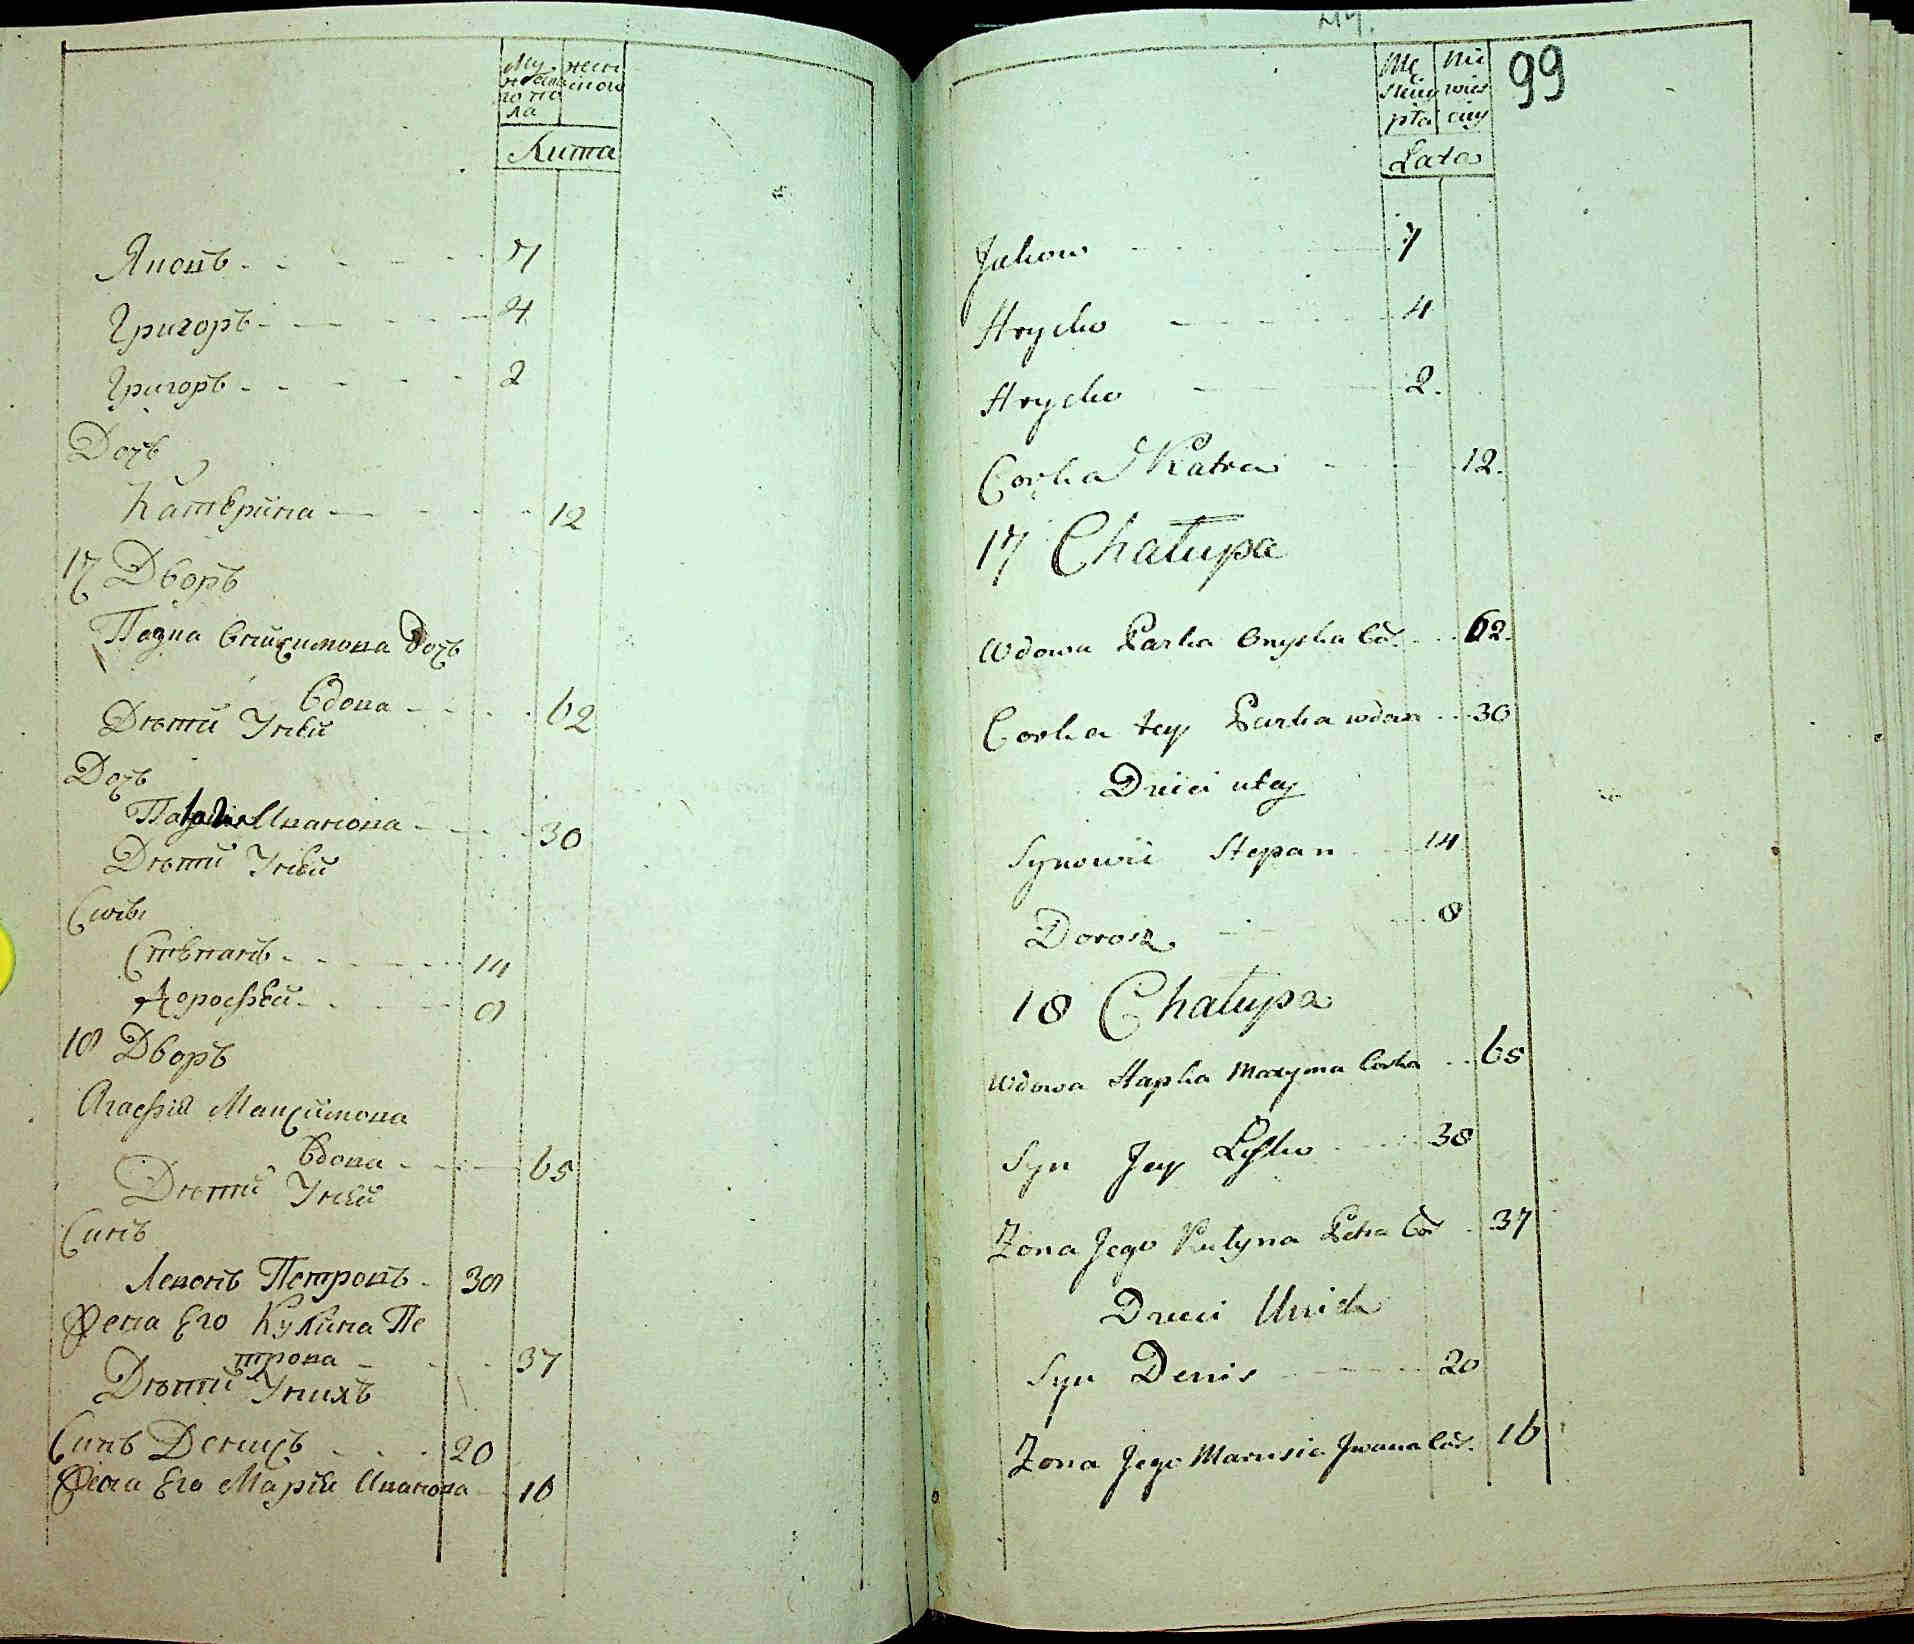 Му
жеска
го по
ла
женс
ского
Лита
Яковъ 7
Григоръ 4
Григоръ 2
Дочь
Катерина 12
17 Дворъ
Онисимова Дочь
Вдова 62
Дѣти Унеи
Дочь
Иванова 30
Дѣти Унеи
Синъ
Степанъ 14
Дорофей 8
18 Дворъ
Агафія Максимова
Вдова 65
Дѣти Унеи
Синъ
Левонъ Петровъ 38
Жена Его Кулина Пе
трова 37
Дѣти Унихъ
Синъ Денисъ 20
Жена Его Марія Иванова 16
99
Lata
Jakow 7
Hryćko 4
Hryćko 2.
Corka Katra 12.
17 Chałupa
Wdowa Parka Onyska Có. 62.
Corka tey Parka wdow 30
Dzieci utey
Synowie Stepan 14
Dorosz 8
18 Chałupa
Wdowa Hapka Maxyma Corka 65
Syn Jey 38
Zona Jego Kulyna Petra Có 37
Dzieci Unich
Syn Denis 20
Zona Jego Marusia Jwana Có. 16